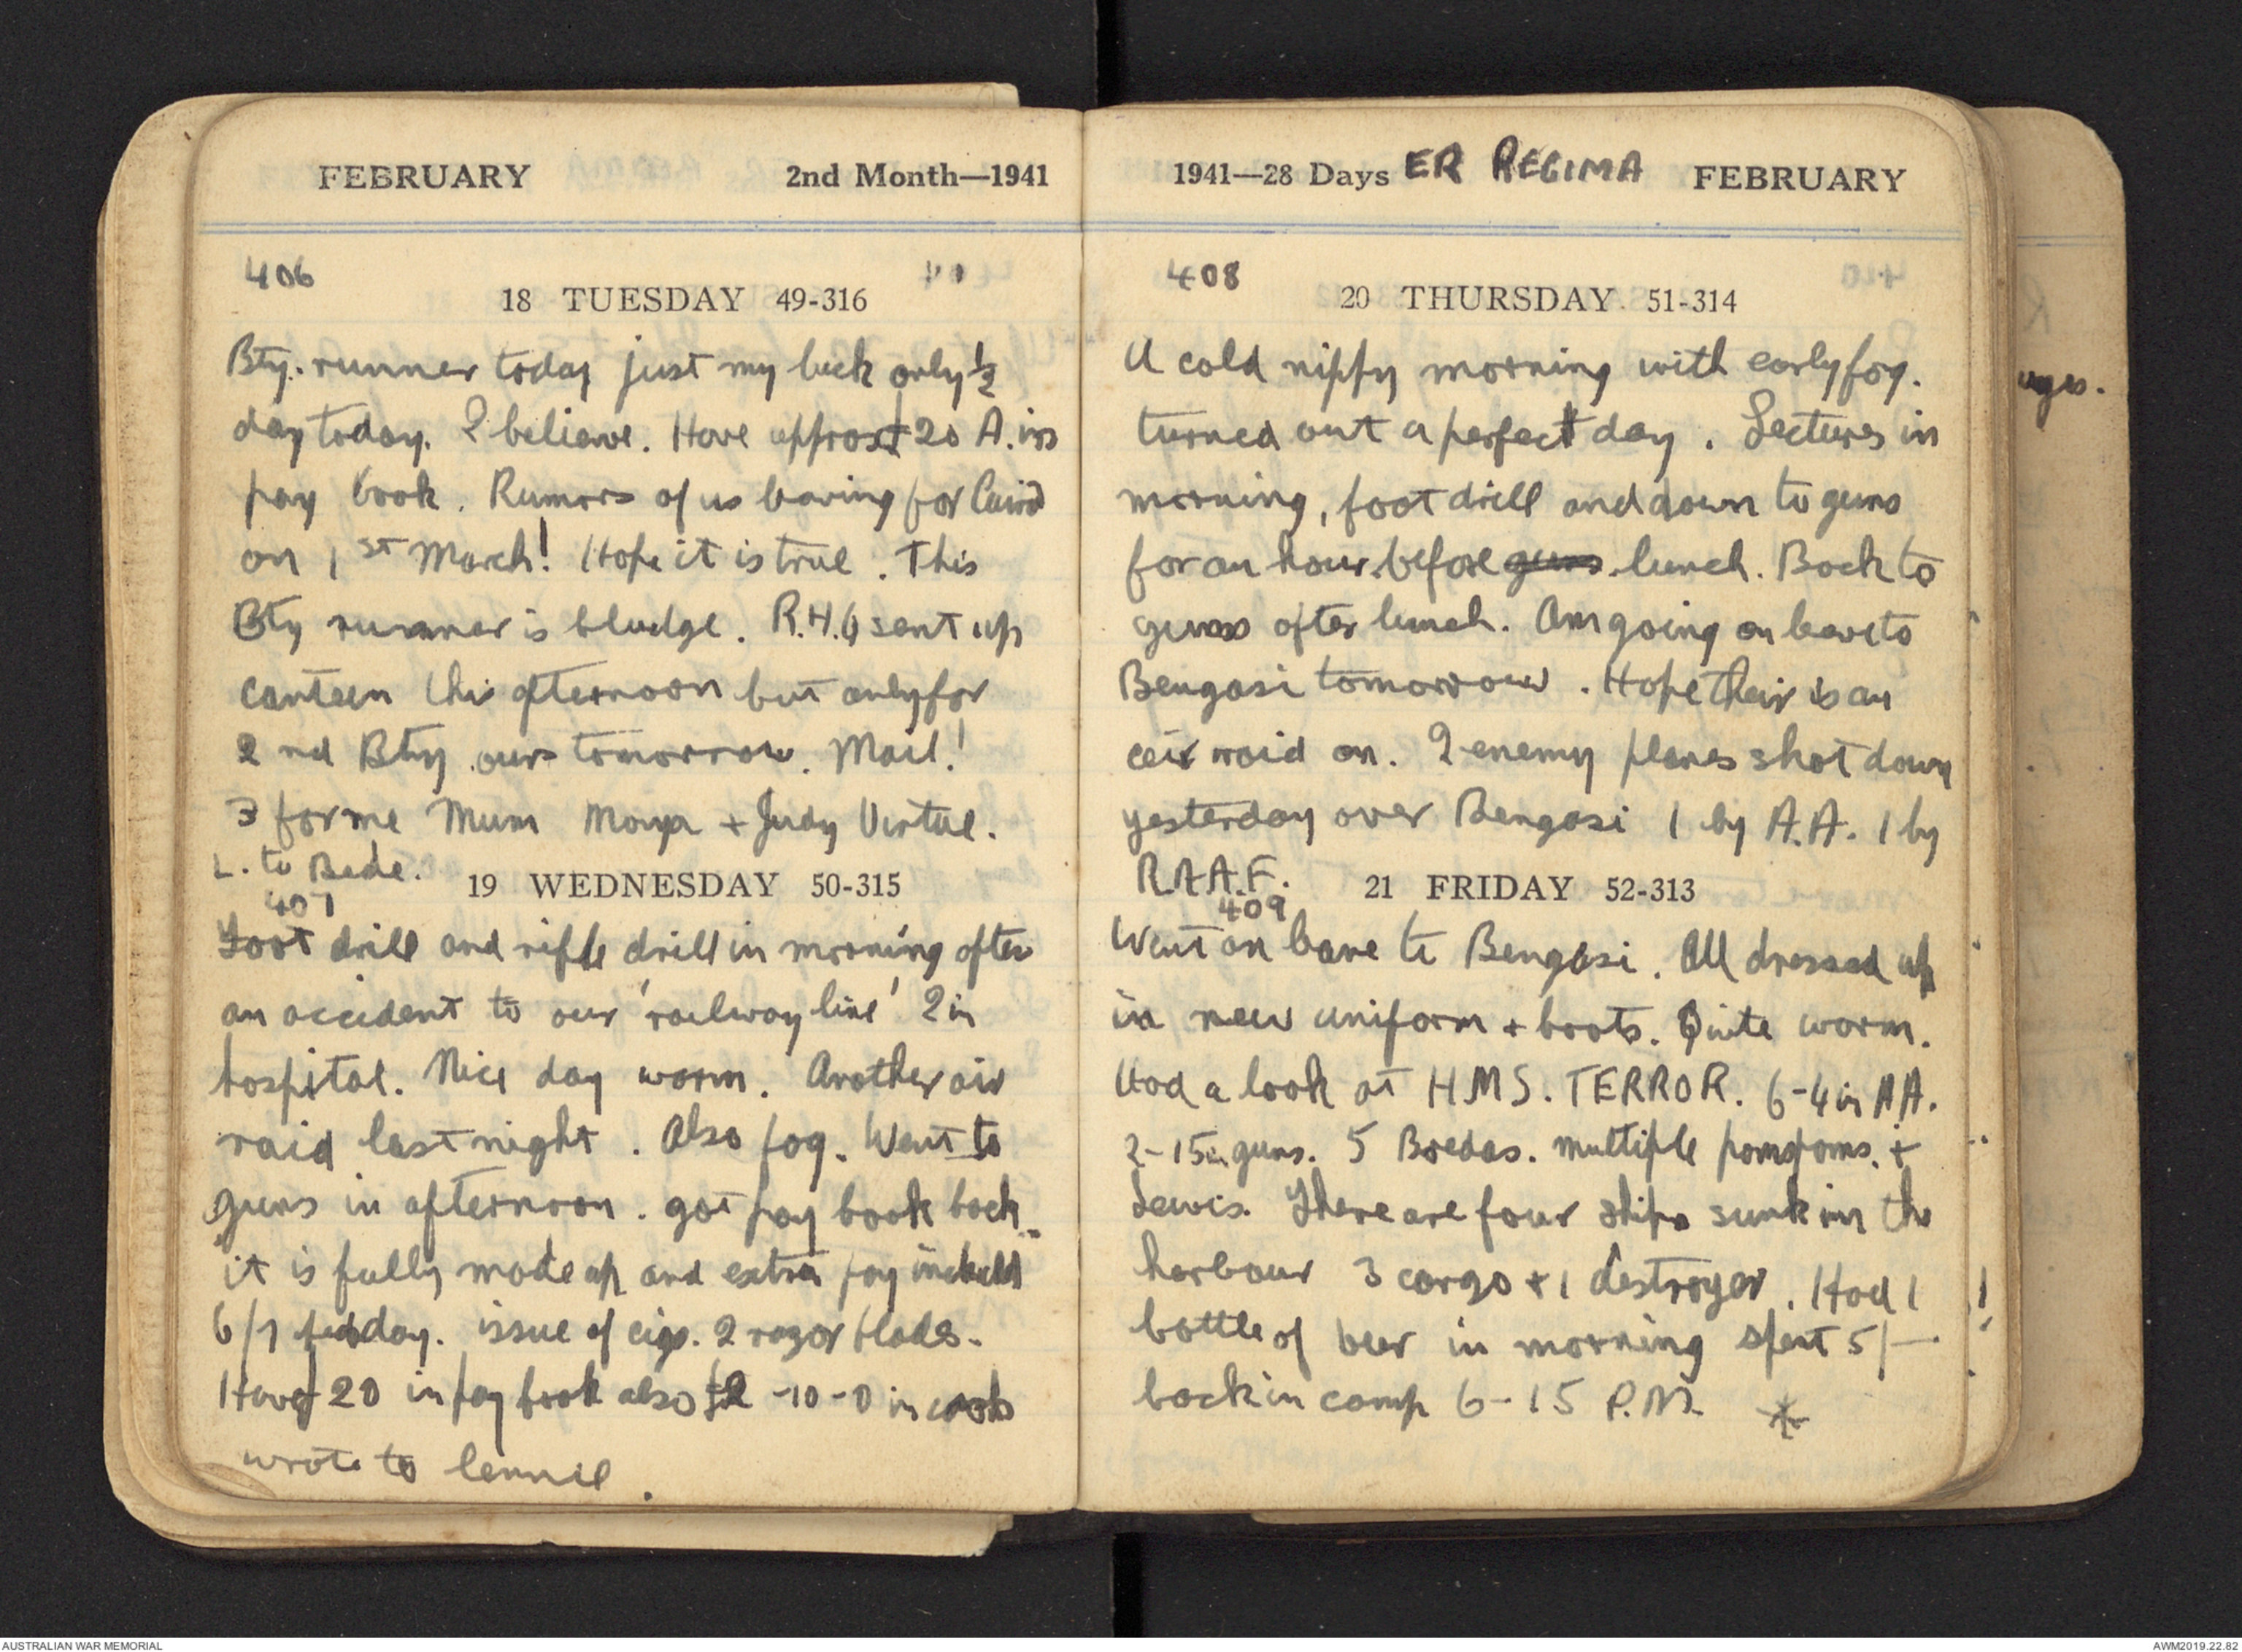 FEBRUARY 2nd Month—1941
406
18 TUESDAY 49-316
Bty. runner today just my luck only ½
day today. I believe. Have approx £20 A. in
pay book. Rumors of us leaving for Cairo
on 1st March! Hope it is true. This
Bty runner is bludge. R.H.Q sent up
canteen this afternoon but only for
2nd Bty ours tomorrow. Mail!
3 for me Mum Moya + Judy Virtue.
L. to Bede.
19 WEDNESDAY 50-315
407
Foot drill and rifle drill in morning after
an accident to our 'railway line' 2 in
hospital. Nice day warm. Another air
raid last night. Also fog. Went to
guns in afternoon. got pay book back
it is fully made up and extra pay
6/7 day. issue of cigs. 2 razor blades.
Have £20 in pay book also £2-10-0 in
wrote to Lennie.
1941—28 Days ER REGIMA FEBRUARY
408
20 THURSDAY 51-314
A cold nippy morning with early fog.
turned out a perfect day. Lectures in
morning, foot drill and down to guns
for an hour before guns lunch. Back to
guns after lunch. Am going on leave to
Bengasi tomorrow. Hope their is an
air raid on. 2 enemy planes shot down
yesterday over Bengasi 1 by A.A. 1 by
R.A.A.F.
21 FRIDAY 52-313
409
Went on leave to Bengasi. All dressed up
in new uniform + boots. Quite warm.
Had a look at H.M.S. TERROR. 6-4 in AA.
2-15in guns. 5 Bredas. multiple pompoms. +
Lewis. There are four ships sunk in the
harbour 3 cargo + 1 destroyer. Had 1
bottle of beer in morning spent 5/-
back in camp 6-15 P.M. *
AUSTRALIAN WAR MEMORIAL
AWM2019.22.82